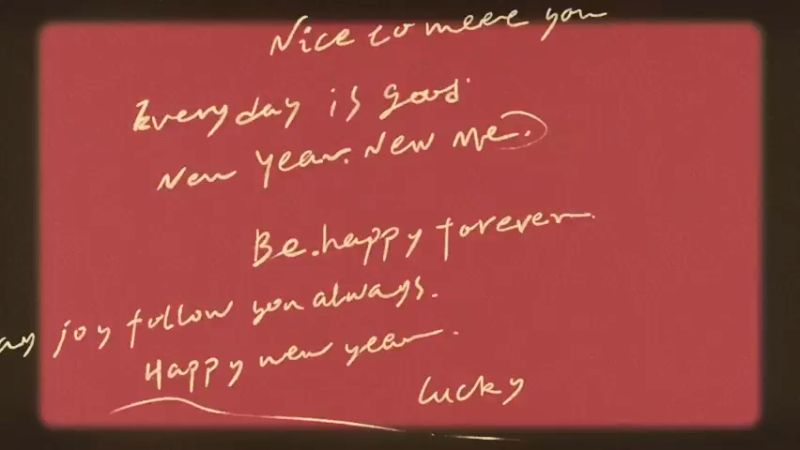 Nice to meet you
Everyday is good.
New Year. New Me.
Be. happy forever.
joy follow you always.
Happy new year.
Lucky